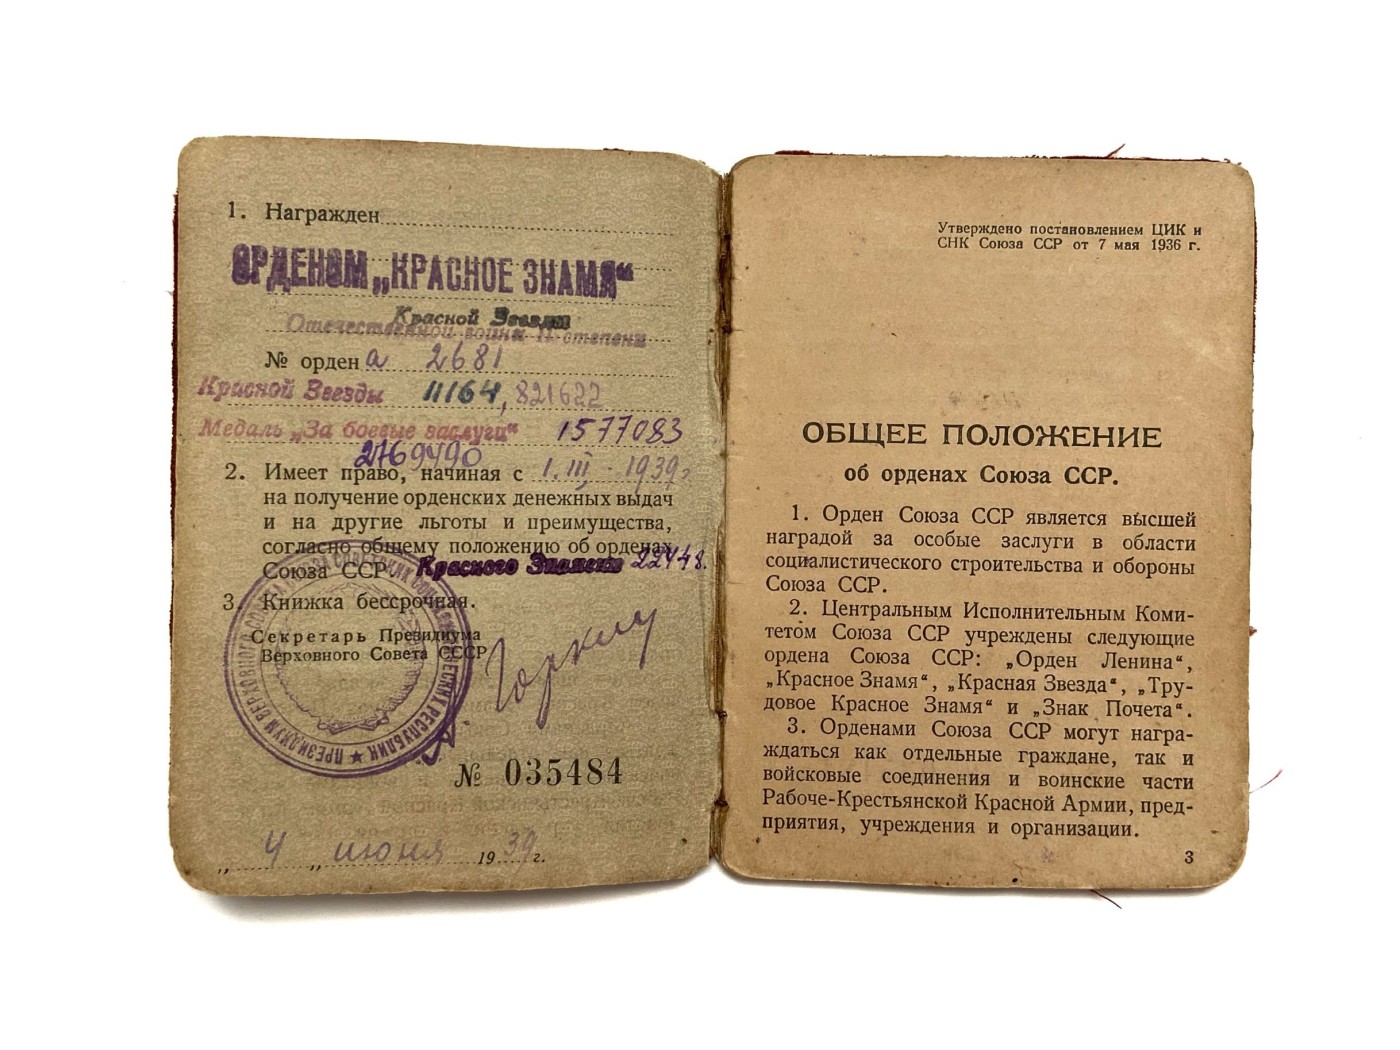 1. Награжден
ОРДЕНОМ „КРАСНОЕ ЗНАМЯ“
Красной Звезды
Отечественной войны II степени
№ орден а 2681
Красной Звезды 11164, 821622
Медаль „За боевые заслуги“ 1577083
2769490
2. Имеет право, начиная с 1.III - 1939г
на получение орденских денежных выдач
и на другие льготы и преимущества,
согласно общему положению об орденах
Союза ССР Красного Знамени 22448.
3. Книжка бессрочная.
Секретарь Президиума
Верховного Совета СССР
А. Горкин
ПРЕЗИДИУМ ВЕРХОВНОГО СОВЕТА СОЮЗА СОВЕТСКИХ СОЦИАЛИСТИЧЕСКИХ РЕСПУБЛИК
№ 035484
„ 4 „ июня 1939 г.
Утверждено постановлением ЦИК и
СНК Союза ССР от 7 мая 1936 г.
ОБЩЕЕ ПОЛОЖЕНИЕ
об орденах Союза ССР.
1. Орден Союза ССР является высшей
наградой за особые заслуги в области
социалистического строительства и обороны
Союза ССР.
2. Центральным Исполнительным Коми-
тетом Союза ССР учреждены следующие
ордена Союза ССР: „Орден Ленина“,
„Красное Знамя“, „Красная Звезда“, „Тру-
довое Красное Знамя“ и „Знак Почета“.
3. Орденами Союза ССР могут награ-
ждаться как отдельные граждане, так и
войсковые соединения и воинские части
Рабоче-Крестьянской Красной Армии, пред-
приятия, учреждения и организации.
3